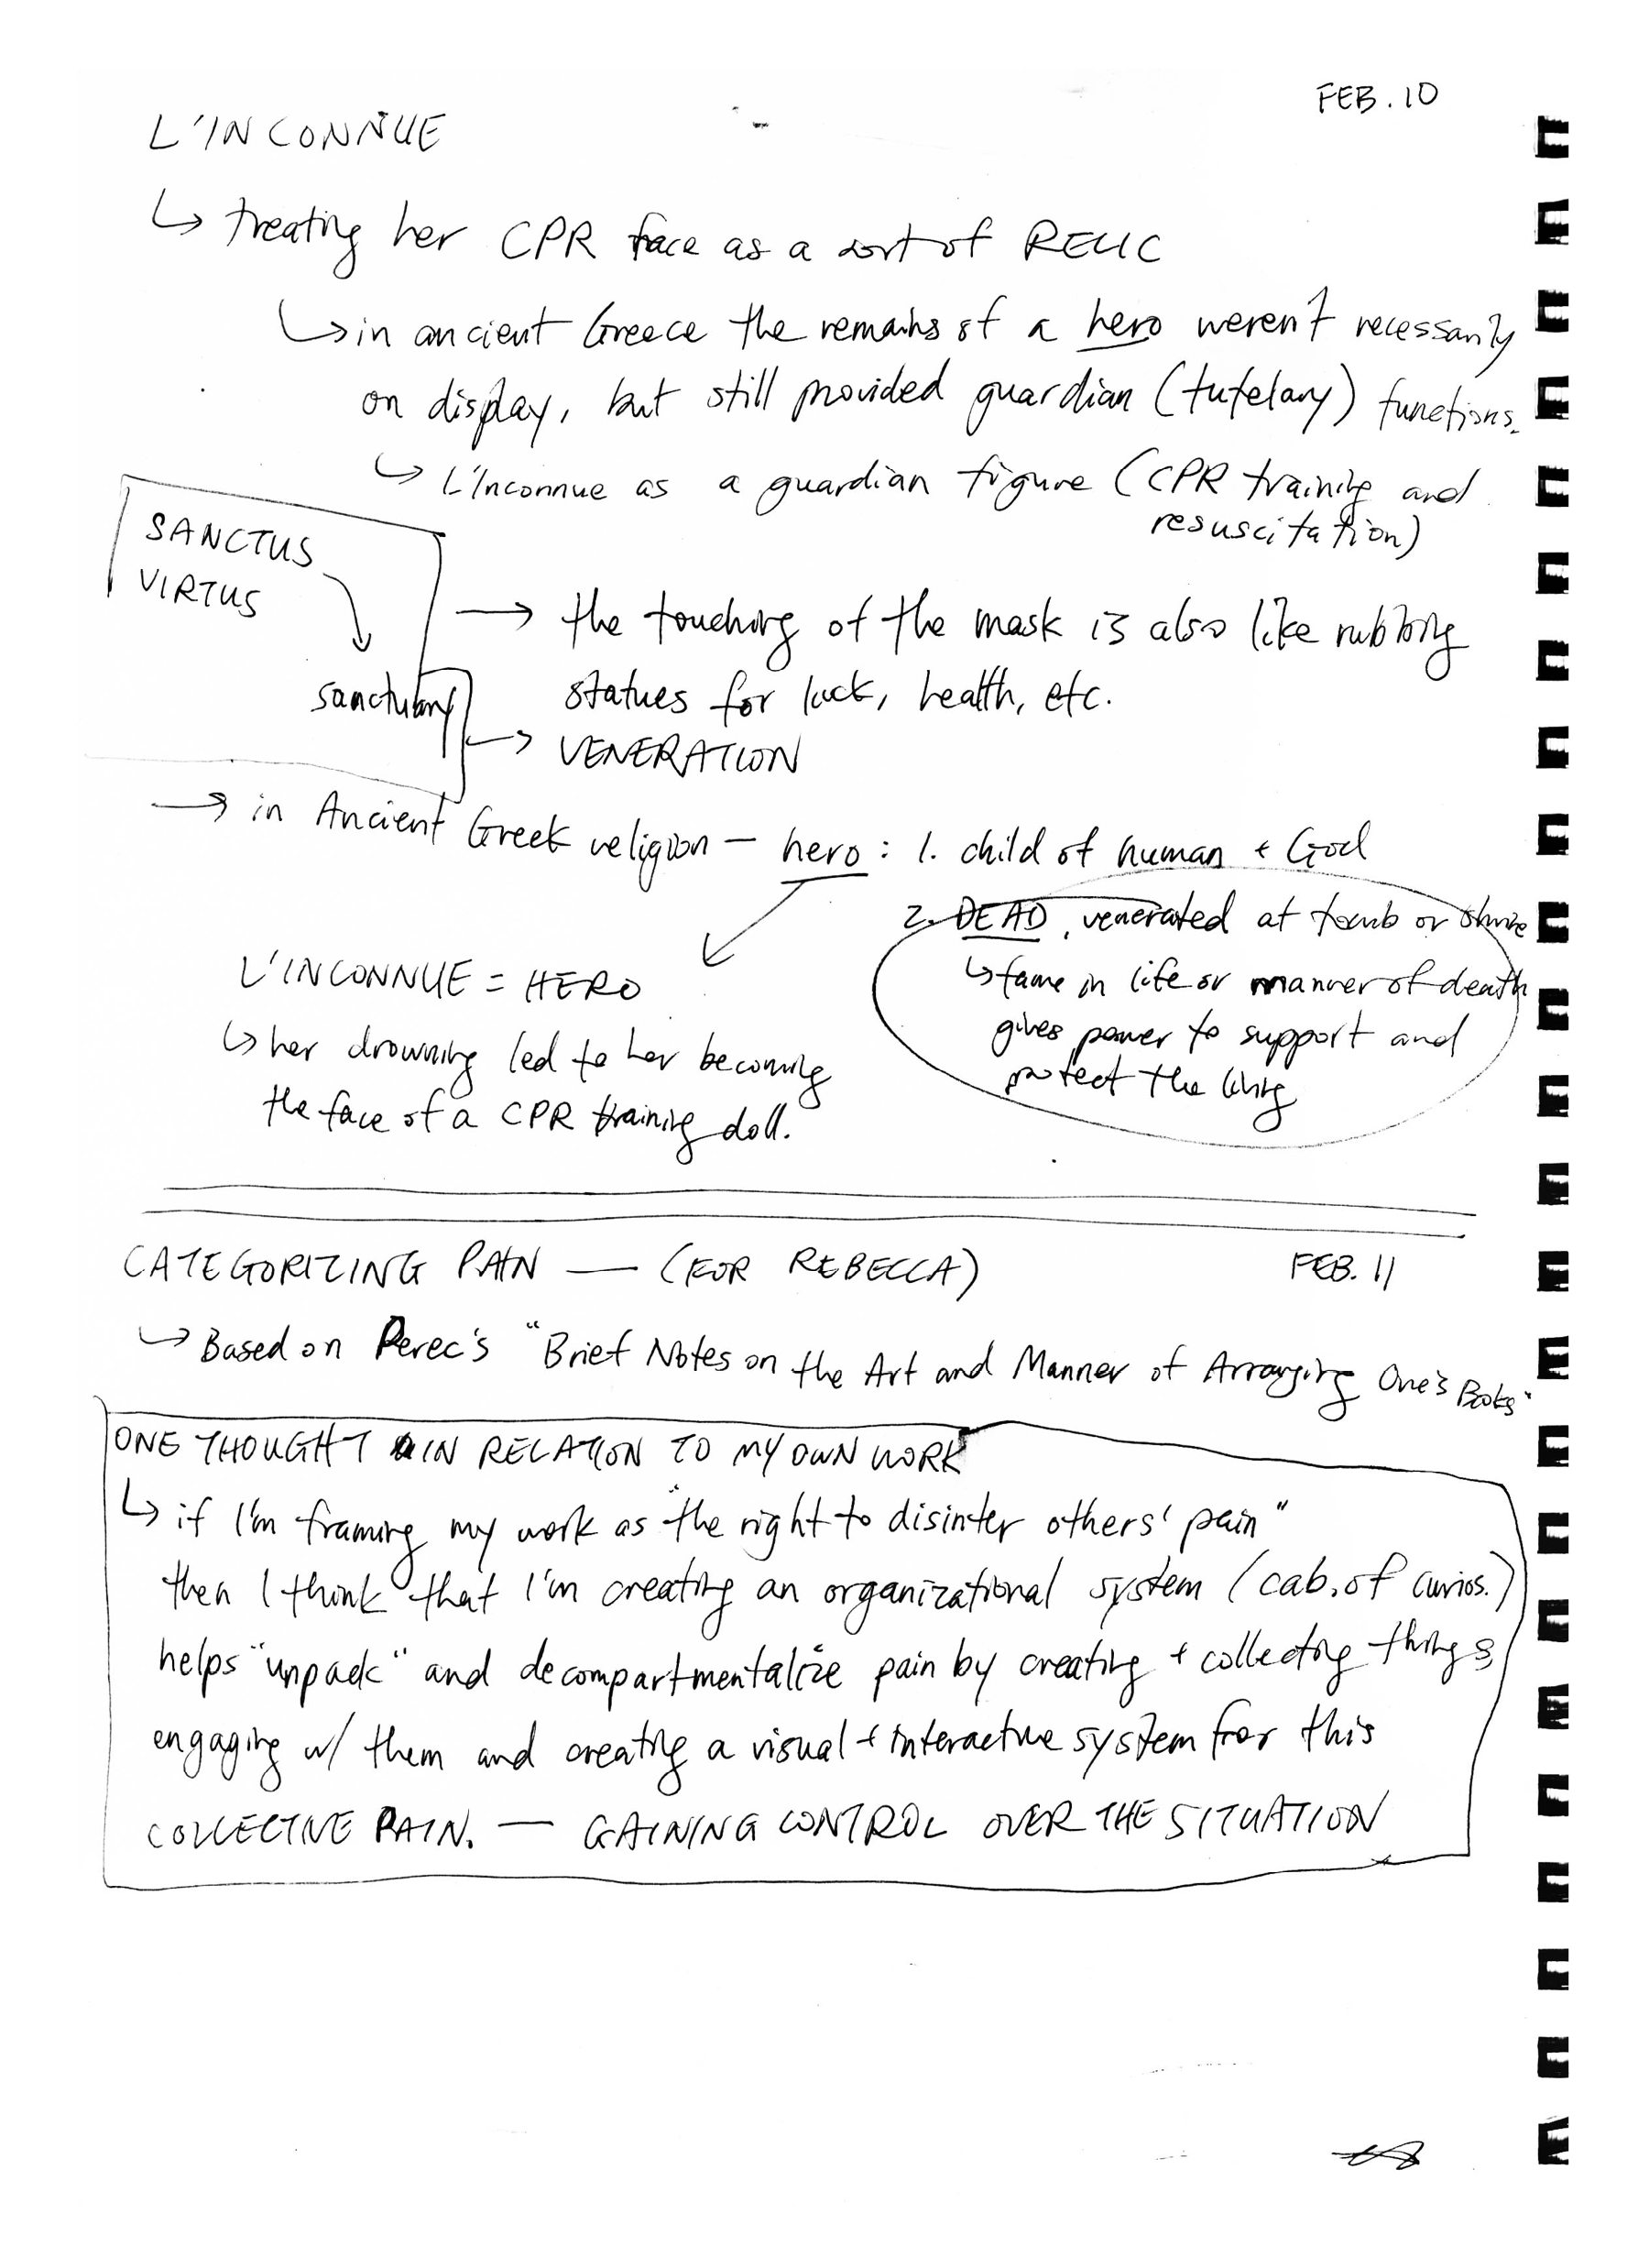 FEB. 10
L'INCONNUE
↳ treating her CPR face as a sort of RELIC
↳ in ancient Greece the remains of a hero weren't necessarily
on display, but still provided guardian (tutelary) functions.
↳ L'Inconnue as a guardian figure (CPR training and
resuscitation)
SANCTUS
VIRTUS
sanctuary
→ the touching of the mask is also like rubbing
statues for luck, health, etc.
→ VENERATION
→ in Ancient Greek religion — hero: 1. child of human + God
2. DEAD, venerated at tomb or shrine
↳ fame in life or manner of death
gives power to support and
protect the living
L'INCONNUE = HERO
↳ her drowning led to her becoming
the face of a CPR training doll.
CATEGORIZING PAIN — (FOR REBECCA)
FEB. 11
↳ Based on Perec's "Brief Notes on the Art and Manner of Arranging One's Books"
ONE THOUGHT IN RELATION TO MY OWN WORK
↳ if I'm framing my work as "the right to disinter others' pain"
then I think that I'm creating an organizational system (cab. of curios.)
helps "unpack" and decompartmentalize pain by creating + collecting things
engaging w/ them and creating a visual + interactive system for this
COLLECTIVE PAIN. — GAINING CONTROL OVER THE SITUATION